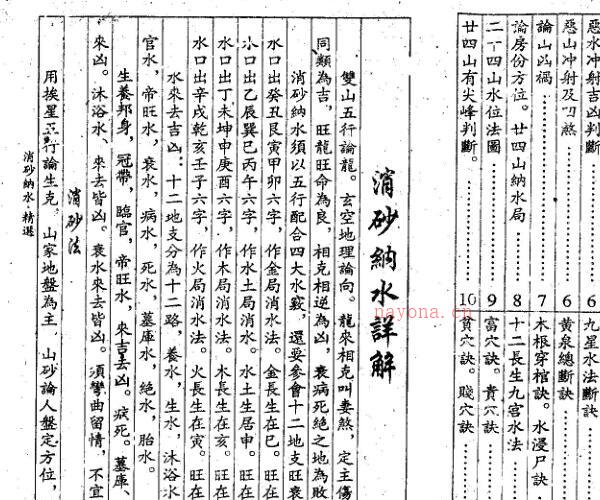 惡水冲射吉凶判斷。 6
惡山冲射及凹煞………… 6
論山凶禍………… 7
論房份方位。廿四山納水局 8
二十四山水位法圖………… 9
廿四山有尖峰判斷。………… 10
九星水法斷……
黃泉總斷訣……
木根穿棺訣。水浸尸訣
十二長生九宮水法……
富穴訣。貴穴訣……
貧穴訣。賤穴訣……
消砂納水詳解
雙山五行論龍。玄空地理論向。龍來相克叫妻煞，定主傷
同類為吉，旺龍旺命為良，相克相逆為凶，衰病死絕之地為敗
消砂納水須以五行配合四大水竅，還要參會十二地支旺衰
水口出癸丑艮寅甲卯六字，作金局消水法。金長生在巳。旺在
水口出乙辰巽巳丙午六字，作水土局消水。水土生居申。旺在
水口出丁未坤申庚酉六字，作木局消水法。木長生在亥。旺在
水口出辛戌乾亥壬子六字，作火局消水法。火長生在寅。旺在
水來去吉凶：十二地支分為十二路，養水，生水，沐浴水
官水，帝旺水，衰水，病水，死水，墓庫水，絕水，胎水。
生養邦身，冠帶，臨官，帝旺水，來吉去凶。病死。墓庫、
來凶。沐浴水、來去皆凶。衰水來去皆凶。須彎曲留情，不宜
消砂法
用挨星五行論生克，山家地盤為主，山砂論人盤定方位，
消砂納水·精選
nayona.cn